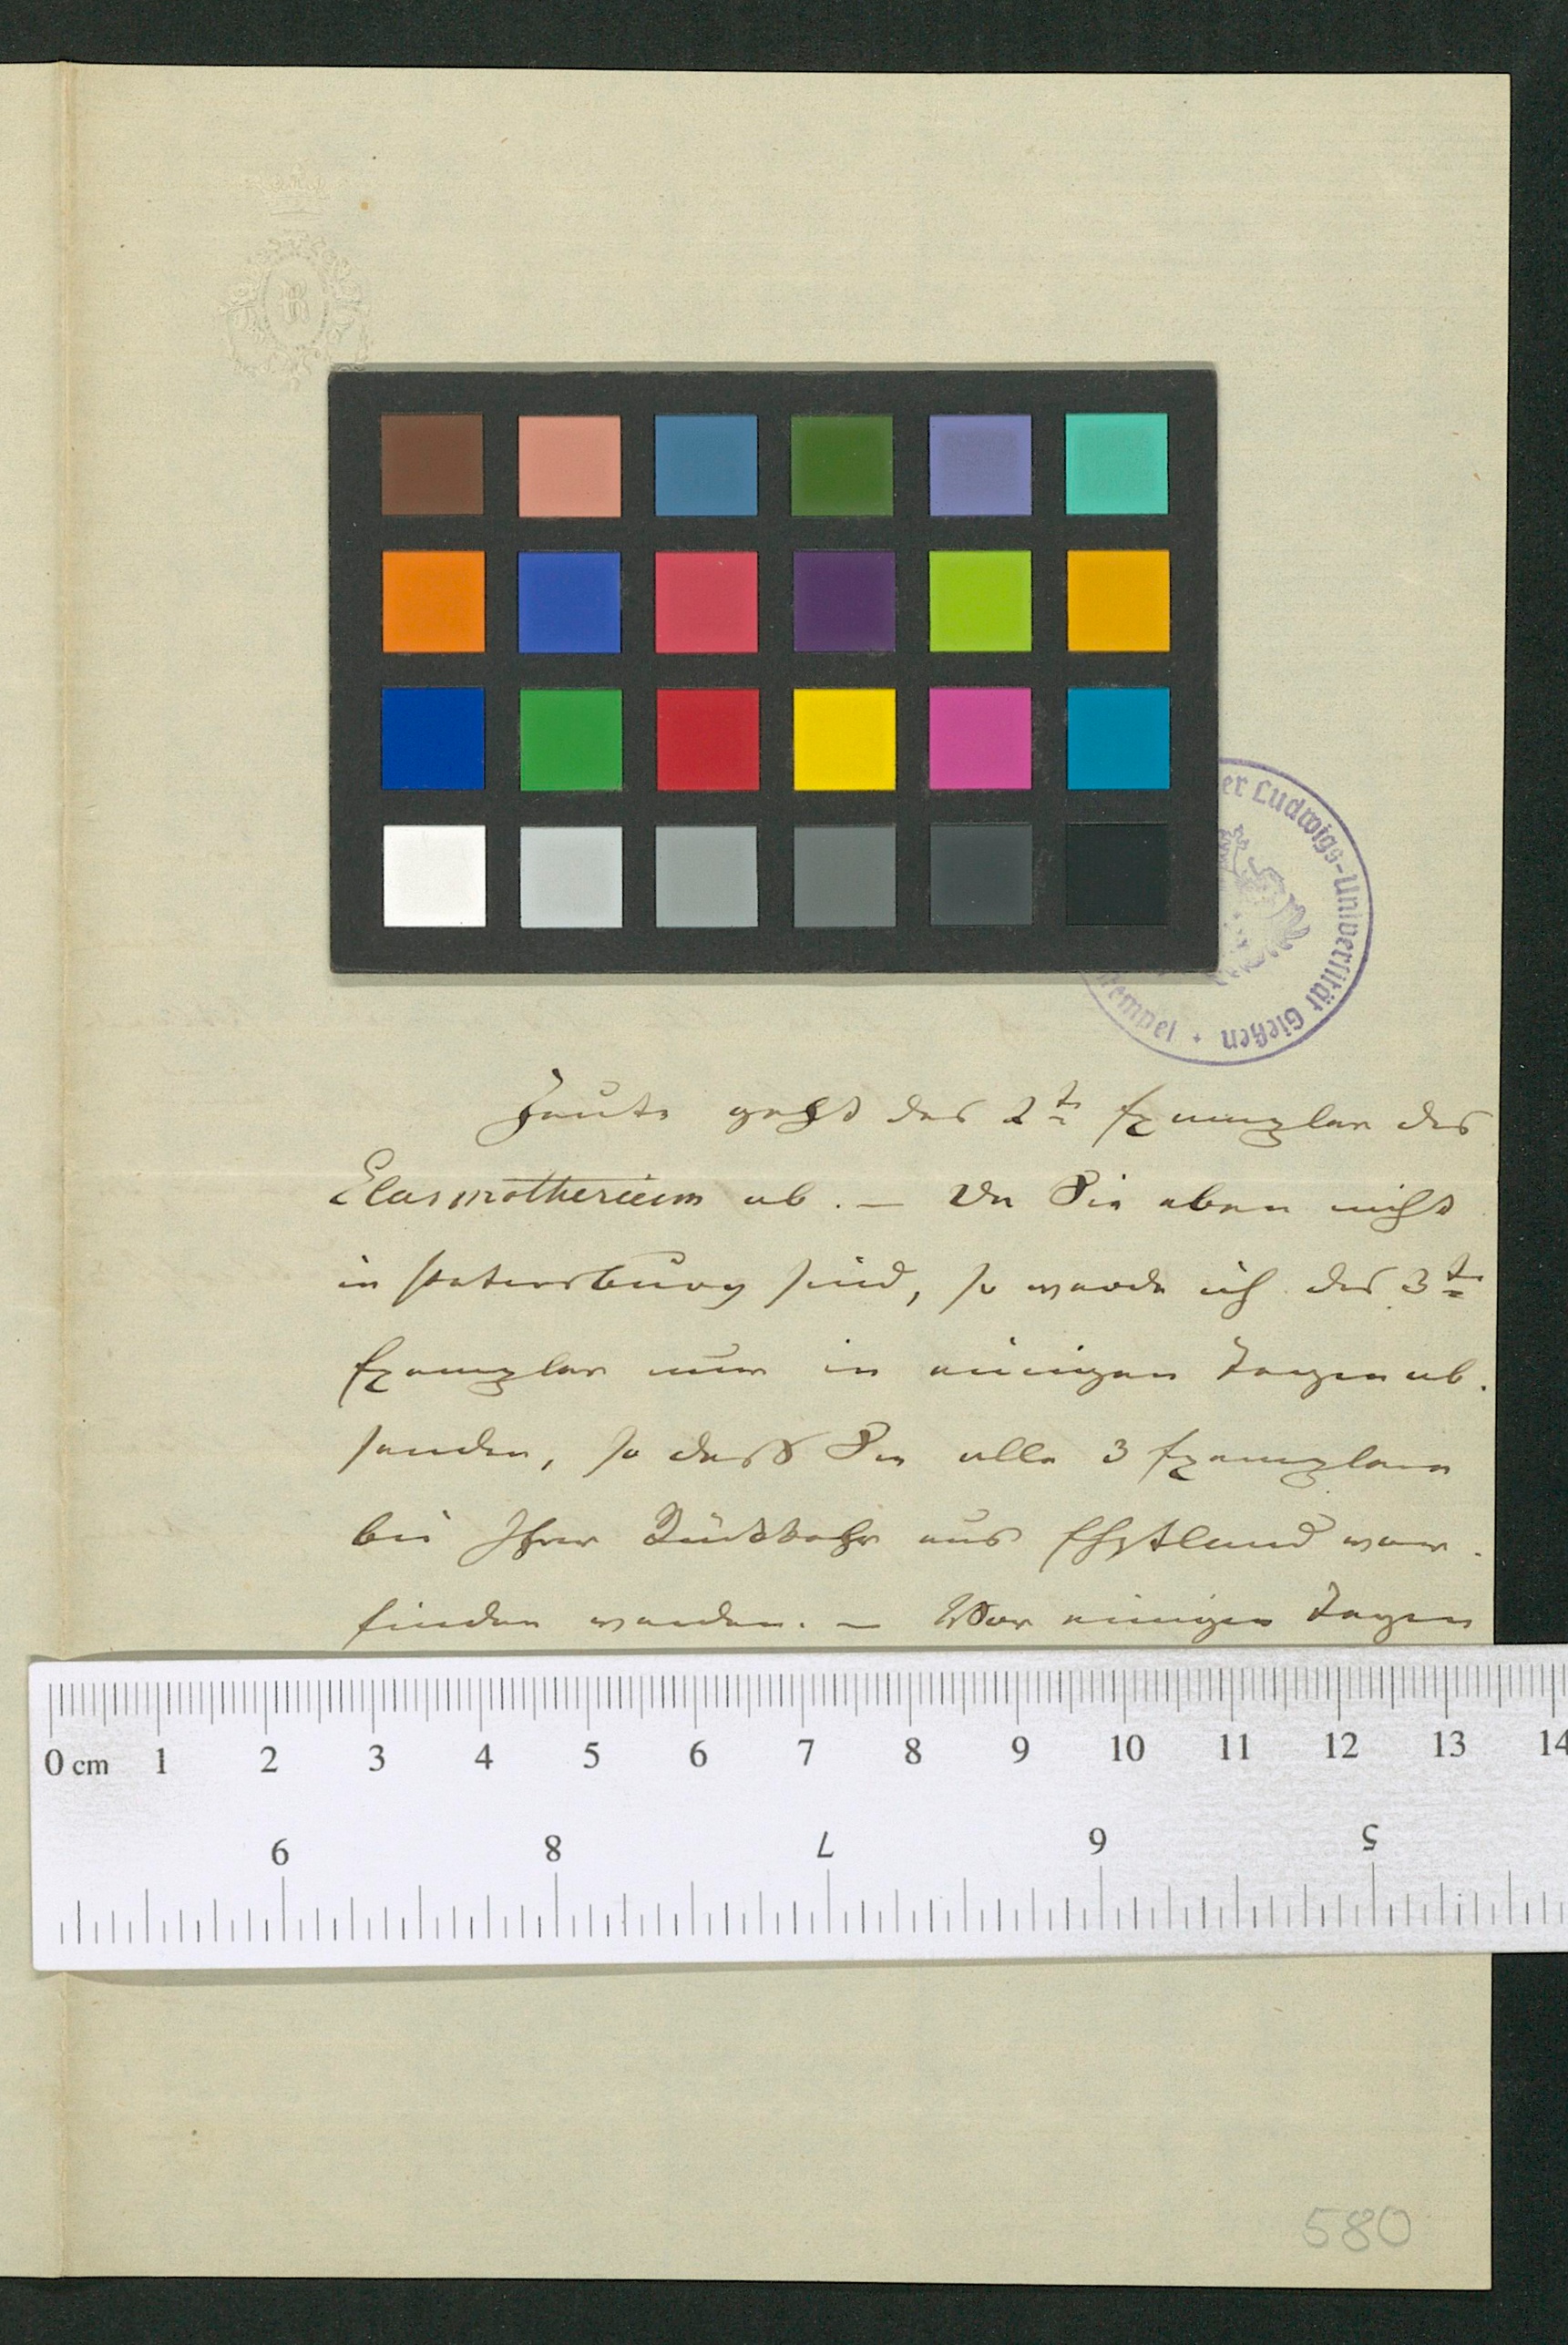 er Ludwigs-Universität Gießen + tempel
Heute geht das 2te Exemplar des
Elasmotherium ab. – Da Sie eben nicht
in Petersburg sind, so werde ich das 3te
Exemplar nur in einigen Tagen ab-
senden, so dass Sie alle 3 Exemplare
bei Ihrer Rückkehr aus Ehstland vor-
finden werden. – Vor einigen Tagen
0 cm 1 2 3 4 5 6 7 8 9 10 11 12 13 14
9 8 7 6 5
580